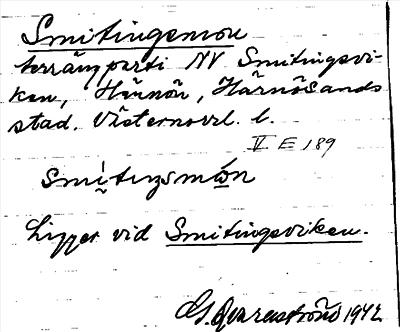 Smitingsmon
terrängparti NV Smitingsvi-
ken, Hemsön, Härnösands
stad. Västernorrl. l.
V E 189
smi̱tıŋsmó̱n
Ligger vid Smitingsviken.
1942